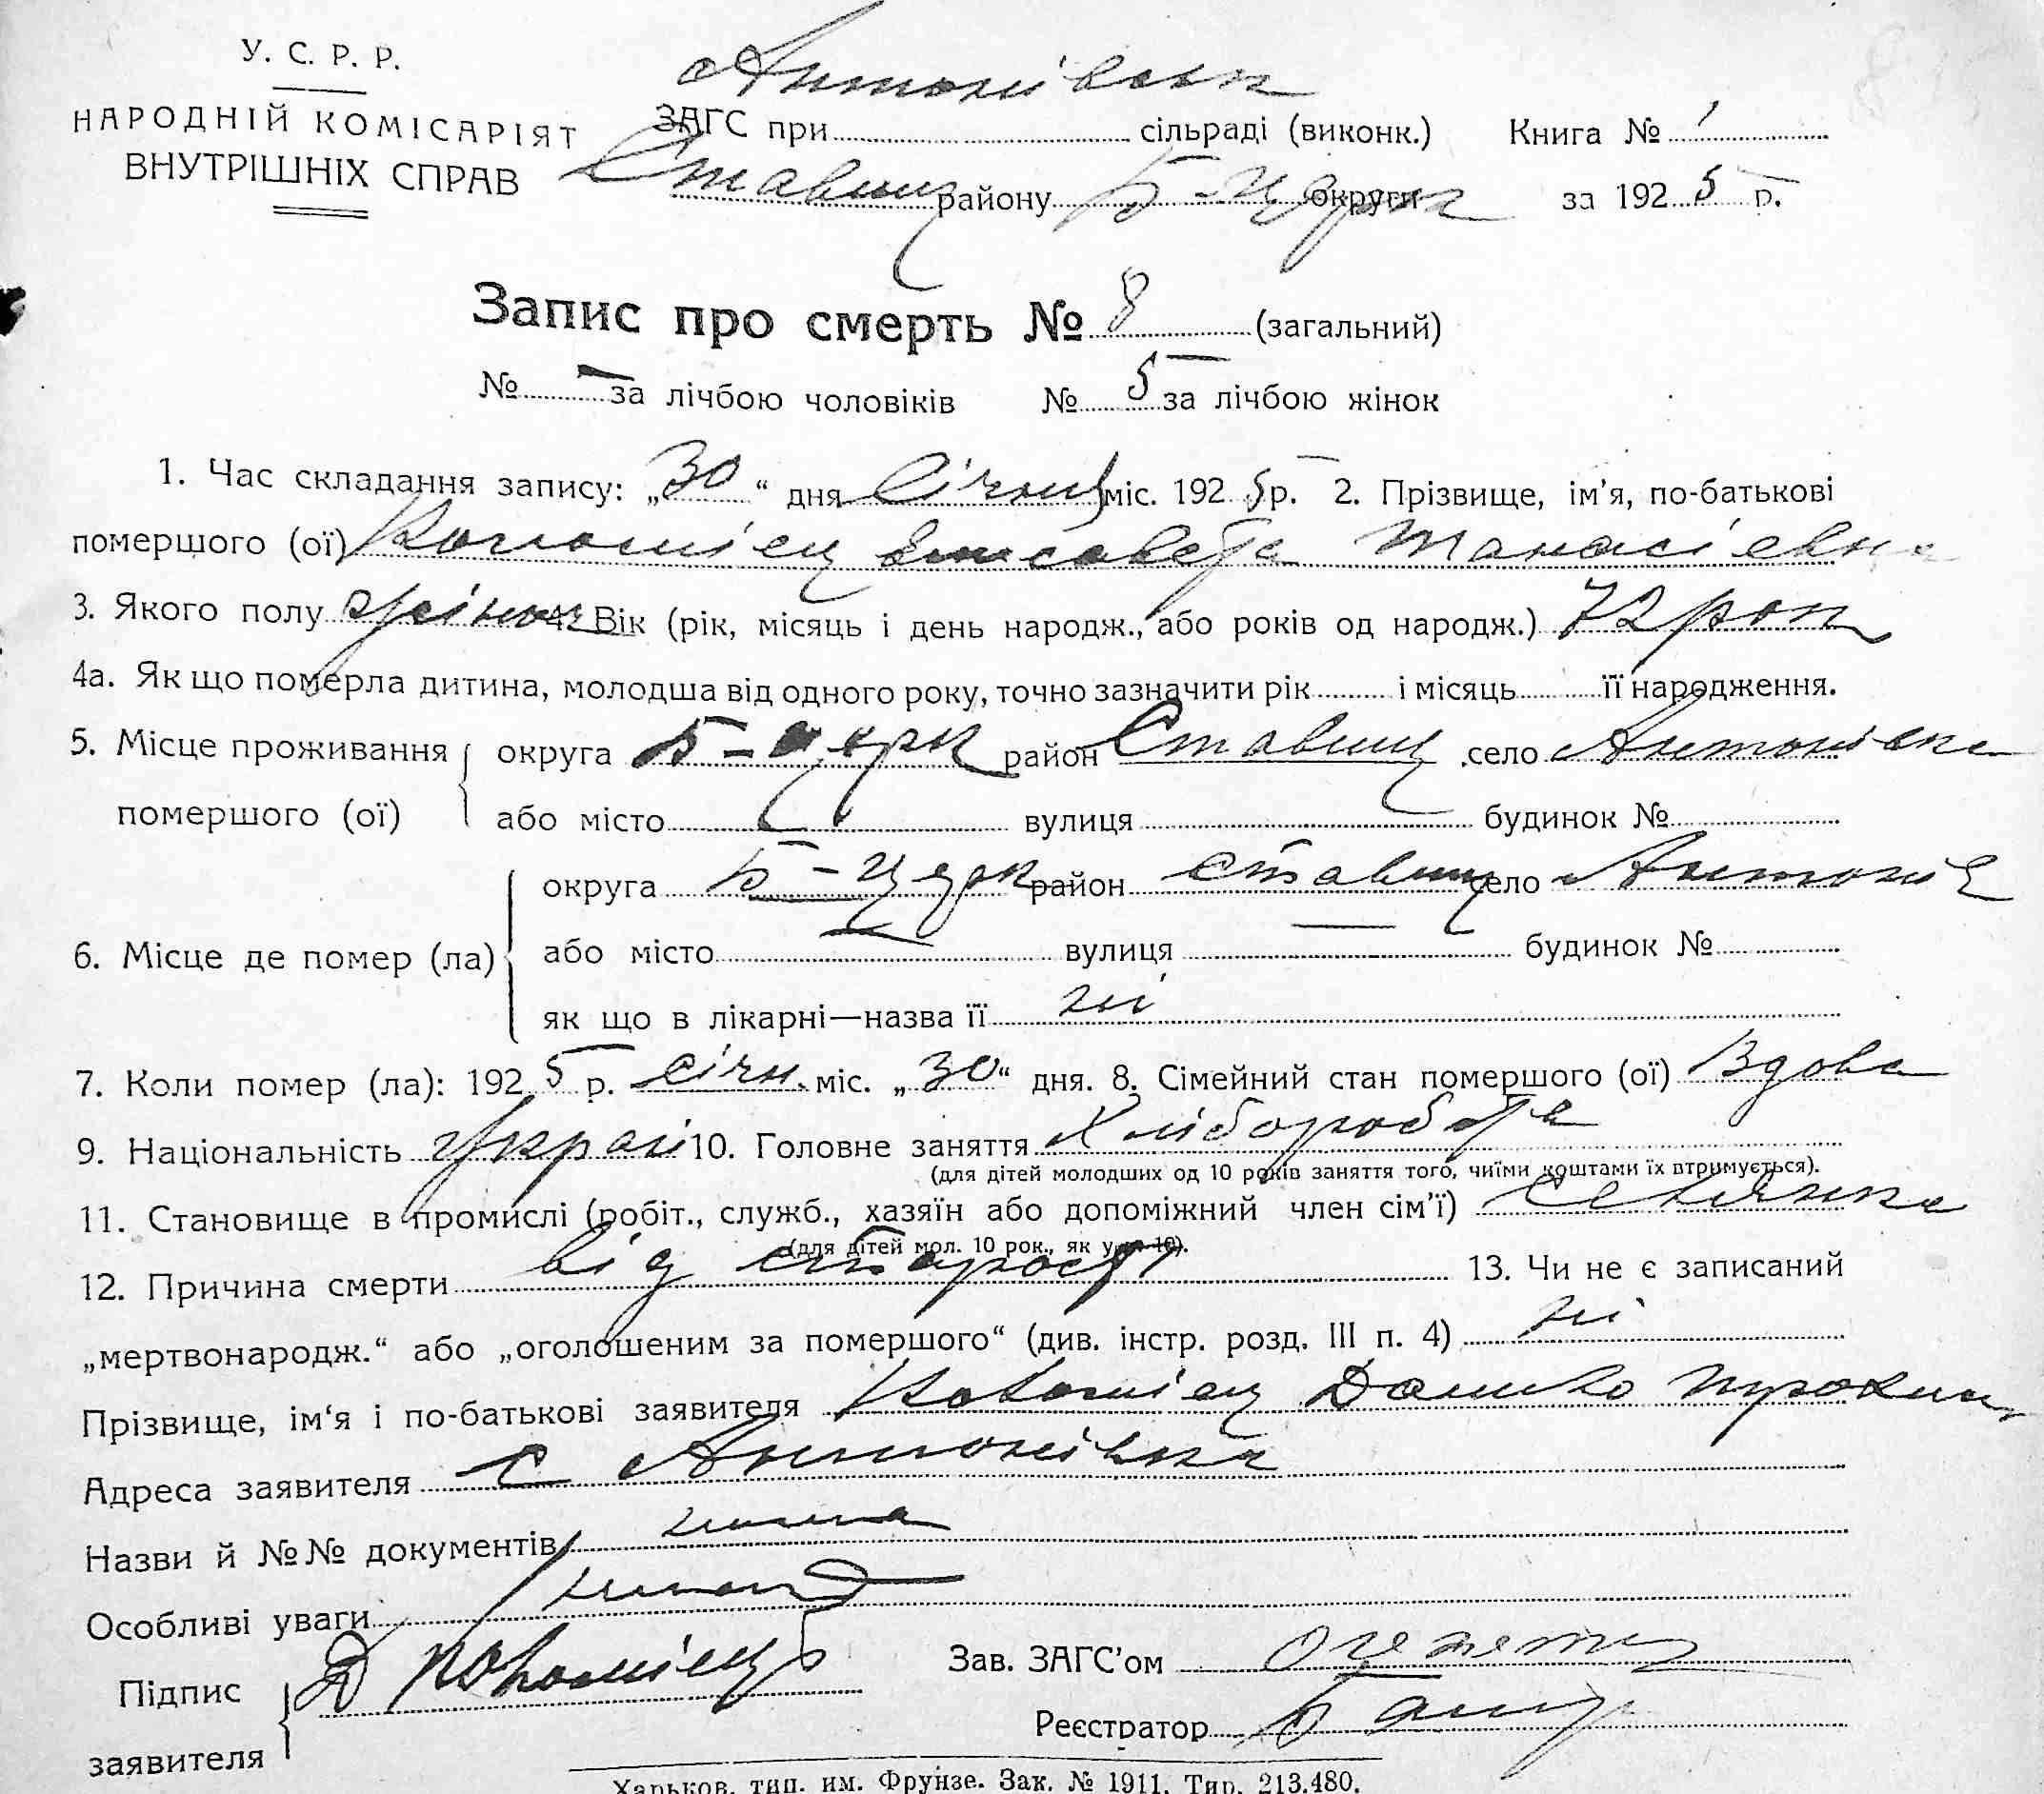 У. С. Р. Р.
НАРОДНІЙ КОМІСАРІЯТ
ВНУТРІШНІХ СПРАВ
Антонівськ
ЗАГС при сільраді (виконк.) Книга № 1
Ставищ району Б-Церк округи за 1925 р.
Запис про смерть № 8 (загальний)
№ — за лічбою чоловіків № 5 за лічбою жінок
1. Час складання запису: „30“ дня Січня міс. 1925 р. 2. Прізвище, ім'я, по-батькові
помершого (ої) Коломієц Елисавета Танасієвна
3. Якого полу жіноч 4. Вік (рік, місяць і день народж., або років од народж.) 72 рок
4а. Як що померла дитина, молодша від одного року, точно зазначити рік і місяць її народження.
5. Місце проживання помершого (ої) округа Б-Церк район Ставищ село Антонівка
або місто вулиця будинок №
6. Місце де помер (ла) округа Б-Церк район Ставищ село Антонів
або місто — вулиця — будинок №
як що в лікарні—назва її ні
7. Коли помер (ла): 1925 р. січн. міс. „30“ дня. 8. Сімейний стан помершого (ої) Вдова
9. Національність Украй 10. Головне заняття Хліборобст
(для дітей молодших од 10 років заняття того, чиїми коштами їх втримується).
11. Становище в промислі (робіт., служб., хазяїн або допоміжний член сім'ї) селянка
(для дітей мол. 10 рок., як у п. 10).
12. Причина смерти від старости 13. Чи не є записаний
„мертвонародж.“ або „оголошеним за помершого“ (див. інстр. розд. III п. 4) ні
Прізвище, ім'я і по-батькові заявителя Коломієц Данило
Адреса заявителя с Антонівка
Назви й №№ документів нима
Особливі уваги нима
Підпис заявителя Д Коломієць
Зав. ЗАГС'ом
Реєстратор
Харьков, тип. им. Фрунзе. Зак. № 1911. Тир. 213.480.